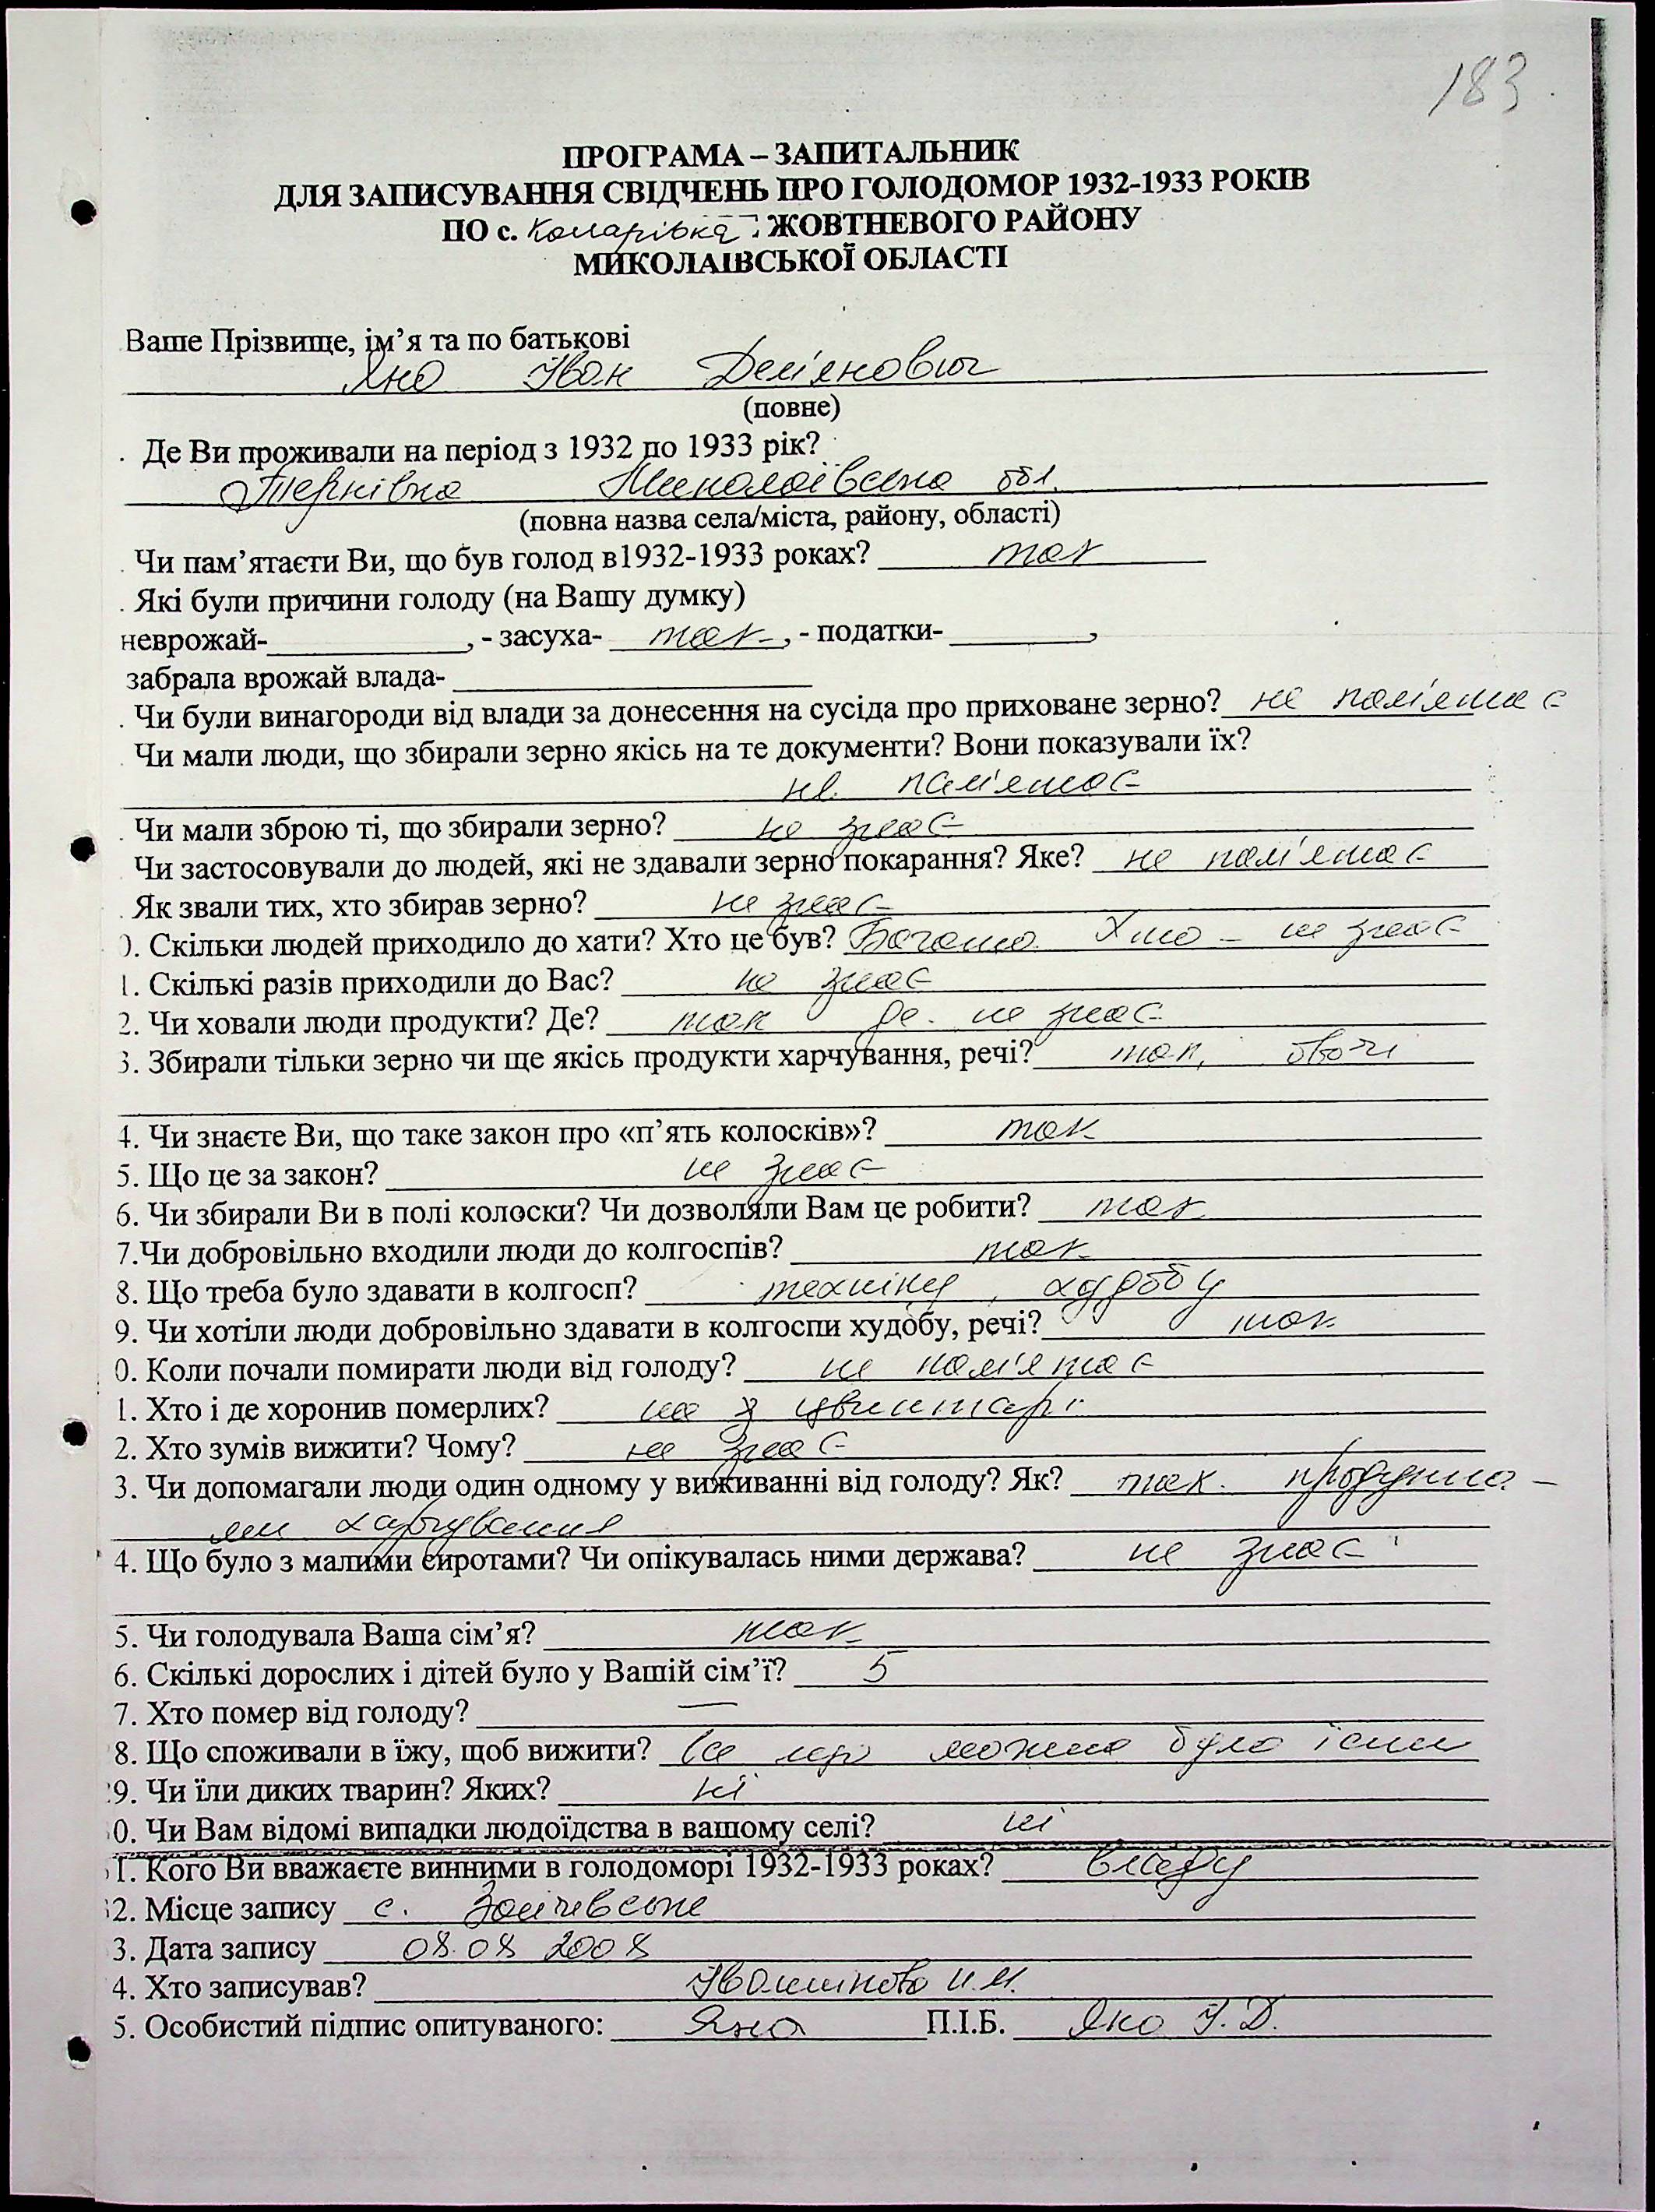 183
ПРОГРАМА – ЗАПИТАЛЬНИК
ДЛЯ ЗАПИСУВАННЯ СВІДЧЕНЬ ПРО ГОЛОДОМОР 1932-1933 РОКІВ
ПО с. Комарівка ЖОВТНЕВОГО РАЙОНУ
МИКОЛАЇВСЬКОЇ ОБЛАСТІ
Ваше Прізвище, ім’я та по батькові
Яно Іван Дем'янович
(повне)
. Де Ви проживали на період з 1932 по 1933 рік?
Тернівка Миколаївська обл.
(повна назва села/міста, району, області)
. Чи пам’ятаєти Ви, що був голод в1932-1933 роках? так
. Які були причини голоду (на Вашу думку)
неврожай- , - засуха- так , - податки- ,
забрала врожай влада-
. Чи були винагороди від влади за донесення на сусіда про приховане зерно? не пам'ятає
. Чи мали люди, що збирали зерно якісь на те документи? Вони показували їх?
не пам'ятає
. Чи мали зброю ті, що збирали зерно? не знає
Чи застосовували до людей, які не здавали зерно покарання? Яке? не пам'ятає
. Як звали тих, хто збирав зерно? не знає
0. Скільки людей приходило до хати? Хто це був? Багато. Хто – не знає
1. Скількі разів приходили до Вас? не знає
2. Чи ховали люди продукти? Де? так де. не знає
3. Збирали тільки зерно чи ще якісь продукти харчування, речі? так, овочі
4. Чи знаєте Ви, що таке закон про «п’ять колосків»? так
5. Що це за закон? не знає
6. Чи збирали Ви в полі колоски? Чи дозволяли Вам це робити? так
7.Чи добровільно входили люди до колгоспів? так
8. Що треба було здавати в колгосп? техніку, худобу
9. Чи хотіли люди добровільно здавати в колгоспи худобу, речі? так
0. Коли почали помирати люди від голоду? не пам'ятає
1. Хто і де хоронив померлих? на цвинтарі
2. Хто зумів вижити? Чому? не знає
3. Чи допомагали люди один одному у виживанні від голоду? Як? так. продукта-
ми харчування
4. Що було з малими сиротами? Чи опікувалась ними держава? не знає
5. Чи голодувала Ваша сім’я? так
6. Скількі дорослих і дітей було у Вашій сім’ї? 5
7. Хто помер від голоду? —
8. Що споживали в їжу, щоб вижити? Все що можна було їсти
9. Чи їли диких тварин? Яких? ні
0. Чи Вам відомі випадки людоїдства в вашому селі? ні
1. Кого Ви вважаєте винними в голодоморі 1932-1933 роках? владу
2. Місце запису с. Зайчевське
3. Дата запису 08.08 2008
4. Хто записував? І.М.
5. Особистий підпис опитуваного: Яно П.І.Б. Яно І.Д.